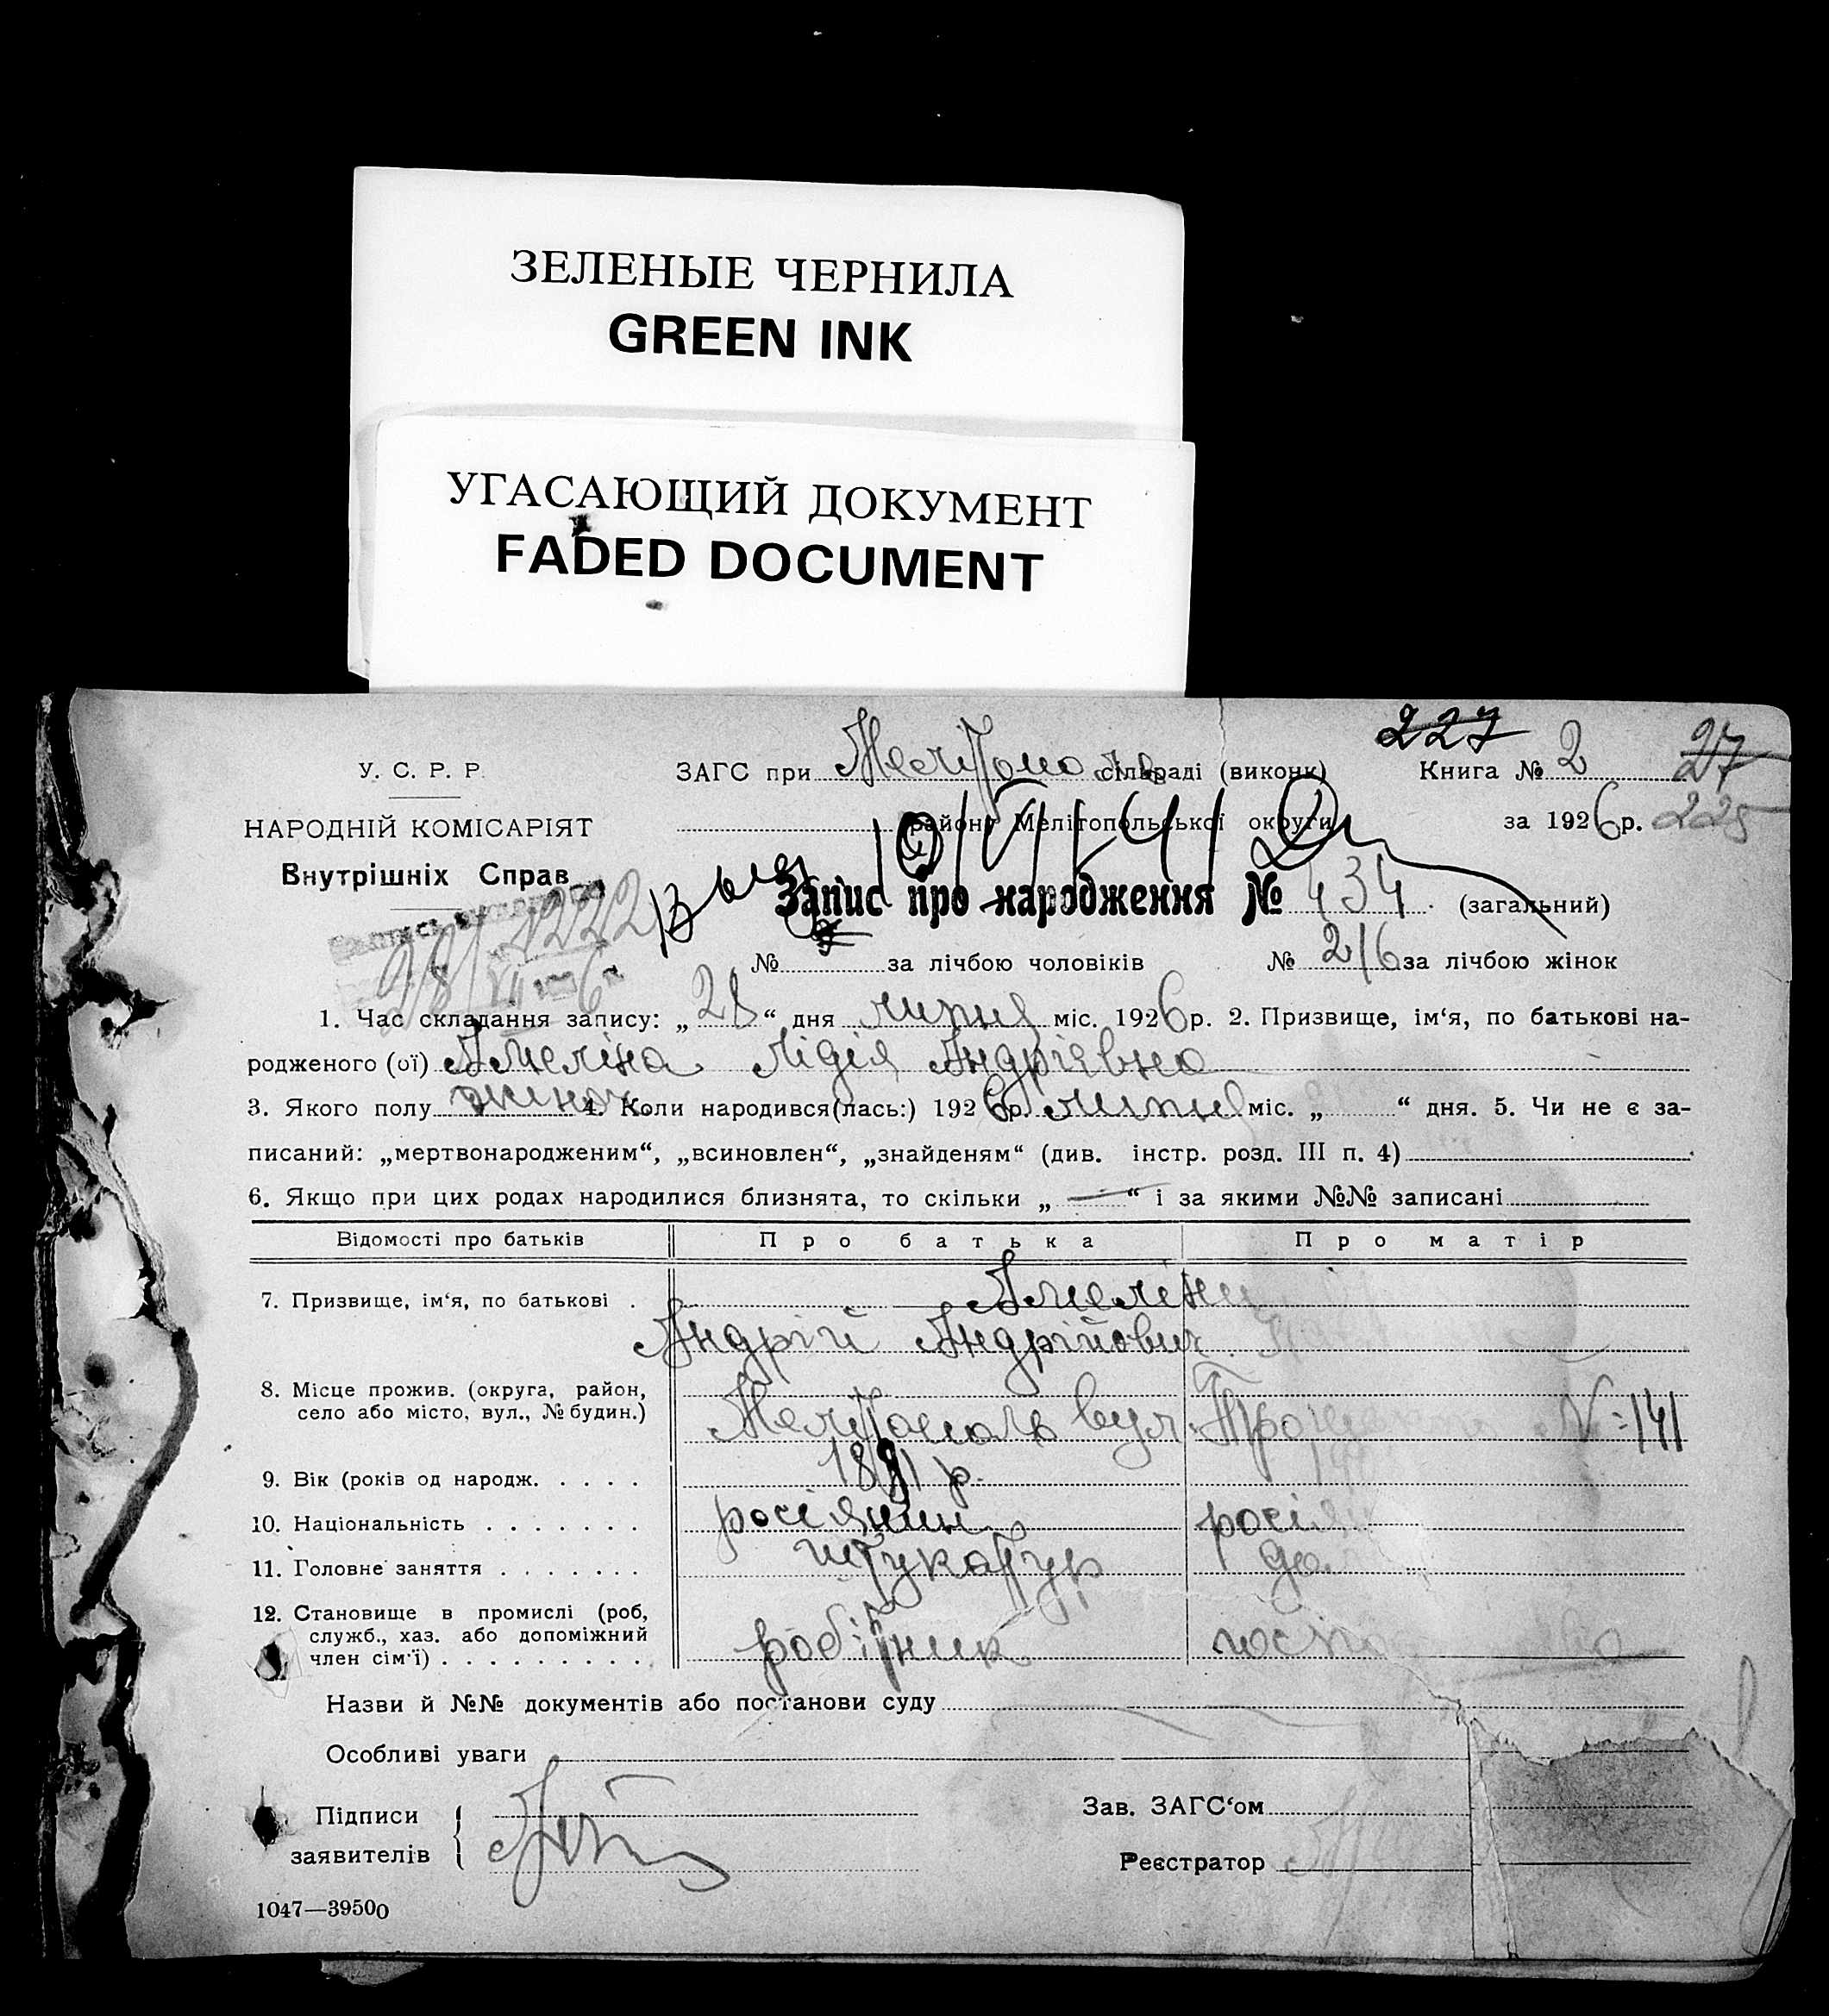 ЗЕЛЕНЫЕ ЧЕРНИЛА
GREEN INK
УГАСАЮЩИЙ ДОКУМЕНТ
FADED DOCUMENT
227
У. С. Р. Р. ЗАГС при Мелітополь сільраді (виконк) Книга № 2 27
НАРОДНІЙ КОМІСАРІЯТ району Мелітопольської округи за 1926 р. 225
Внутрішніх Справ
Запис про народження № 434 (загальний)
№ за лічбою чоловіків № 216 за лічбою жінок
1. Час складання запису: „28“ дня липня міс. 1926 р. 2. Призвище, ім‘я, по батькові на-
родженого (ої) Амеліна Лідія Андріївна
3. Якого полу жіноч. 4. Коли народився(лась:) 1926 р. липня міс. „ “ дня. 5. Чи не є за-
писаний: „мертвонародженим“, „всиновлен“, „знайденям“ (див. інстр. розд. III п. 4)
6. Якщо при цих родах народилися близнята, то скільки „—“ і за якими №№ записані
Відомості про батьків Про батька Про матір
7. Призвище, ім‘я, по батькові . Амеліни
Андрій Андрійович
8. Місце прожив. (округа, район,
село або місто, вул., № будин.) Мелітополь вул. № 141
9. Вік (років од народж. . . . . 1891 р.
10. Національність . . . . . . . росіянин
11. Головне заняття . . . . . . . штукатур
12. Становище в промислі (роб,
служб., хаз. або допоміжний
член сім‘ї) . . . . . . . . . робітник
Назви й №№ документів або постанови суду
Особливі уваги
Підписи
заявителів
Зав. ЗАГС‘ом
Реєстратор
1047—39500